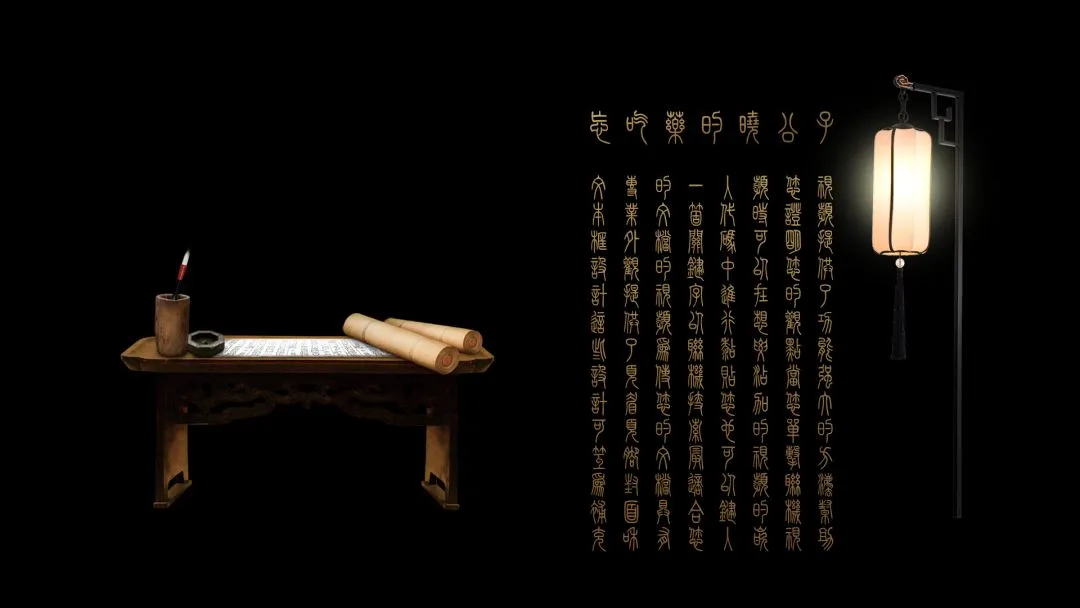 忘吃藥的曉公子
視頻提供了功能强大的方法幫助
您證明您的觀點當您單擊聯機視
頻時可以在想要沾加的視頻的嵌
入代碼中進行黏貼您也可以鍵入
一箇關鍵字以聯機搜索最適合您
的文檔的視頻爲使您的文檔具有
專業外觀提供了頁眉頁脚封面和
文本框設計這些設計可互爲補充